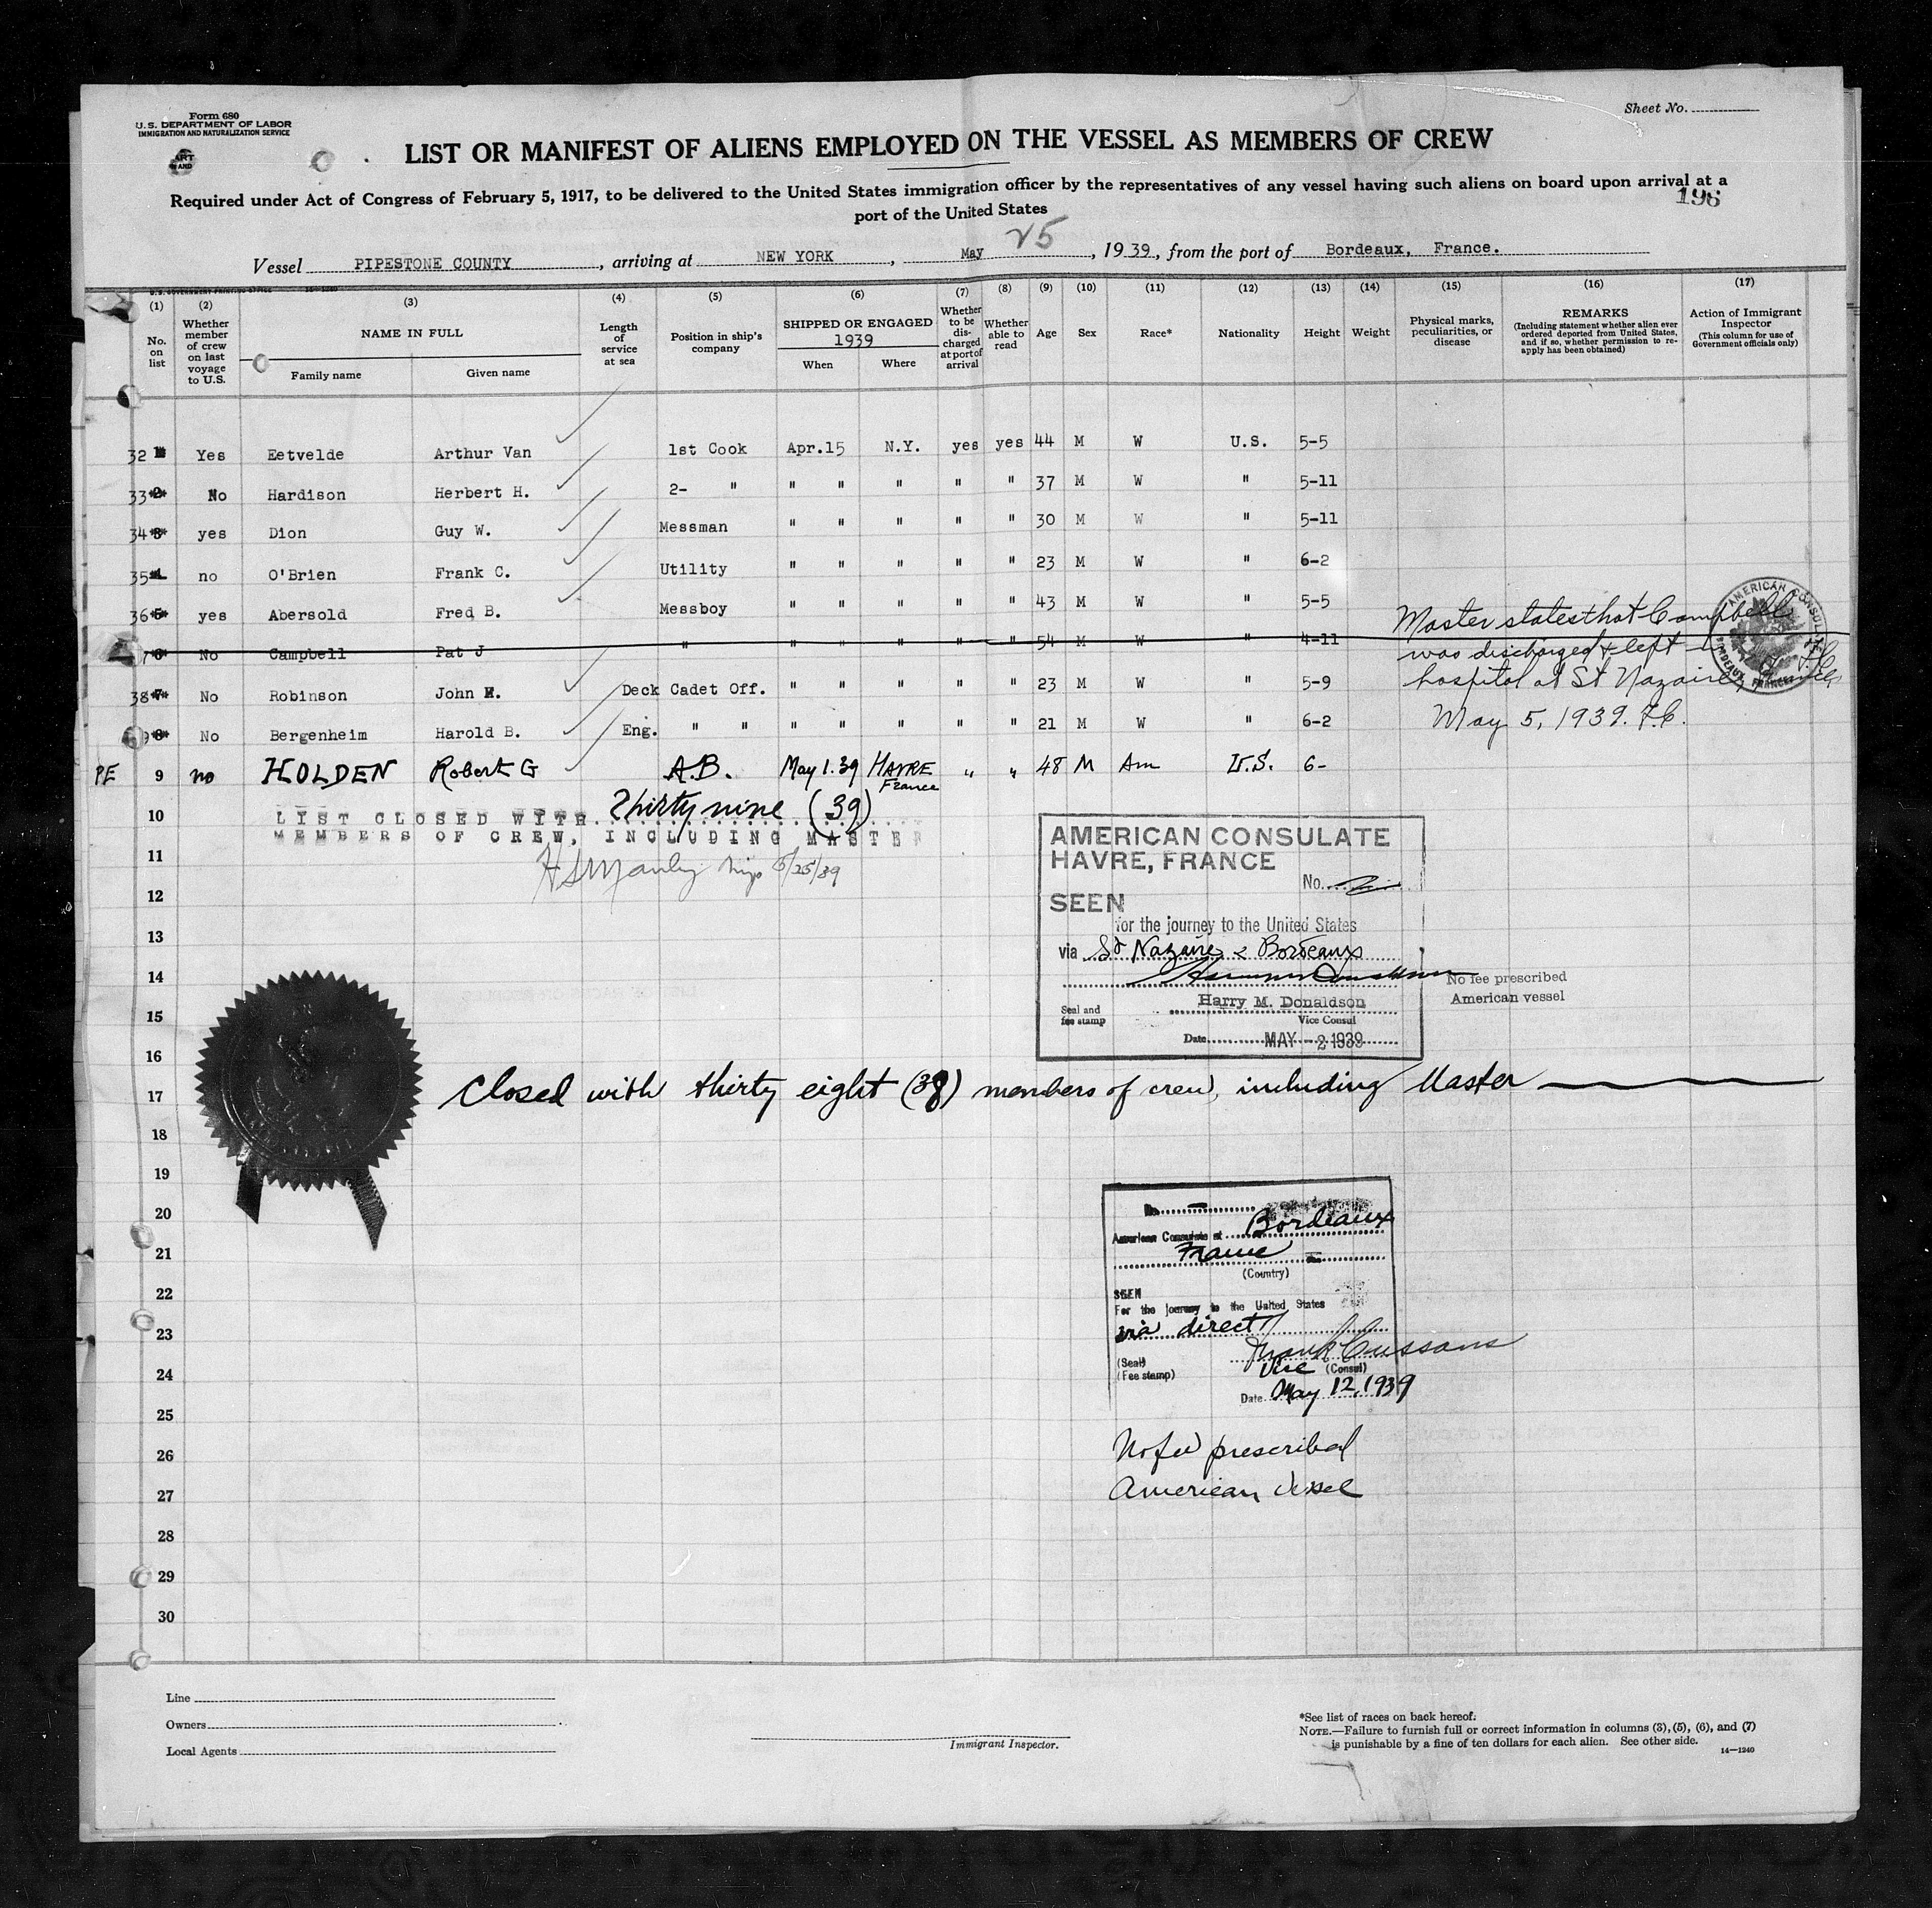 Form 680
U.S. DEPARTMENT OF LABOR
IMMIGRATION AND NATURALIZATION SERVICE
Sheet No.
LIST OR MANIFEST OF ALIENS EMPLOYED ON THE VESSEL AS MEMBERS OF CREW
Required under Act of Congress of February 5, 1917, to be delivered to the United States immigration officer by the representatives of any vessel having such aliens on board upon arrival at a
port of the United States
196
Vessel PIPESTONE COUNTY, arriving at NEW YORK, May 25, 1939, from the port of Bordeaux, France.
(1) (2) (3) (4) (5) (6) (7) (8) (9) (10) (11) (12) (13) (14) (15) (16) (17)
No. on list
Whether member of crew on last voyage to U.S.
NAME IN FULL
Family name
Given name
Length of service at sea
Position in ship's company
SHIPPED OR ENGAGED
1939
When
Where
Whether to be discharged at port of arrival
Whether able to read
Age
Sex
Race*
Nationality
Height
Weight
Physical marks, peculiarities, or disease
REMARKS
(Including statement whether alien ever ordered deported from United States, and if so, whether permission to re-apply has been obtained)
Action of Immigrant Inspector
(This column for use of Government officials only)
32 Yes Eetvelde Arthur Van 1st Cook Apr.15 N.Y. yes yes 44 M W U.S. 5-5
33 No Hardison Herbert H. 2- " " " " " " 37 M W " 5-11
34 yes Dion Guy W. Messman " " " " " 30 M W " 5-11
35 no O'Brien Frank C. Utility " " " " " 23 M W " 6-2
36 yes Abersold Fred B. Messboy " " " " " 43 M W " 5-5
No Campbell Pat J " " " " " " 54 M W " 4-11
Master states that Campbell
was discharged & left in
hospital at St Nazaire, France
May 5, 1939. F.C.
AMERICAN CONSULATE
BORDEAUX, FRANCE
38 No Robinson John Deck Cadet Off. " " " " " 23 M W " 5-9
No Bergenheim Harold B. Eng. " " " " " " " 21 M W " 6-2
PE 9 no HOLDEN Robert G A.B. May 1.39 HAVRE France " " 48 M Am U.S. 6-
10 LIST CLOSED WITH Thirty nine (39)
MEMBERS OF CREW, INCLUDING MASTER
11 5/25/39
12
13
14
15
16
AMERICAN CONSULATE
HAVRE, FRANCE
No.
SEEN
for the journey to the United States
via St Nazaire & Bordeaux
Harry M. Donaldson
Seal and fee stamp
Vice Consul
Date MAY -2 1939
No fee prescribed
American vessel
17 Closed with thirty eight (38) members of crew, including Master
18
19
20
21
22
23
24
25
26
27
28
29
30
No.
American Consulate at Bordeaux
France
(Country)
SEEN
For the journey to the United States
via direct
Frank Cussans
(Seal)
Vice (Consul)
(Fee stamp)
Date May 12, 1939
No fee prescribed
American Vessel
Line
Owners
Local Agents
Immigrant Inspector.
*See list of races on back hereof.
NOTE.—Failure to furnish full or correct information in columns (3), (5), (6), and (7)
is punishable by a fine of ten dollars for each alien. See other side.
14—1240